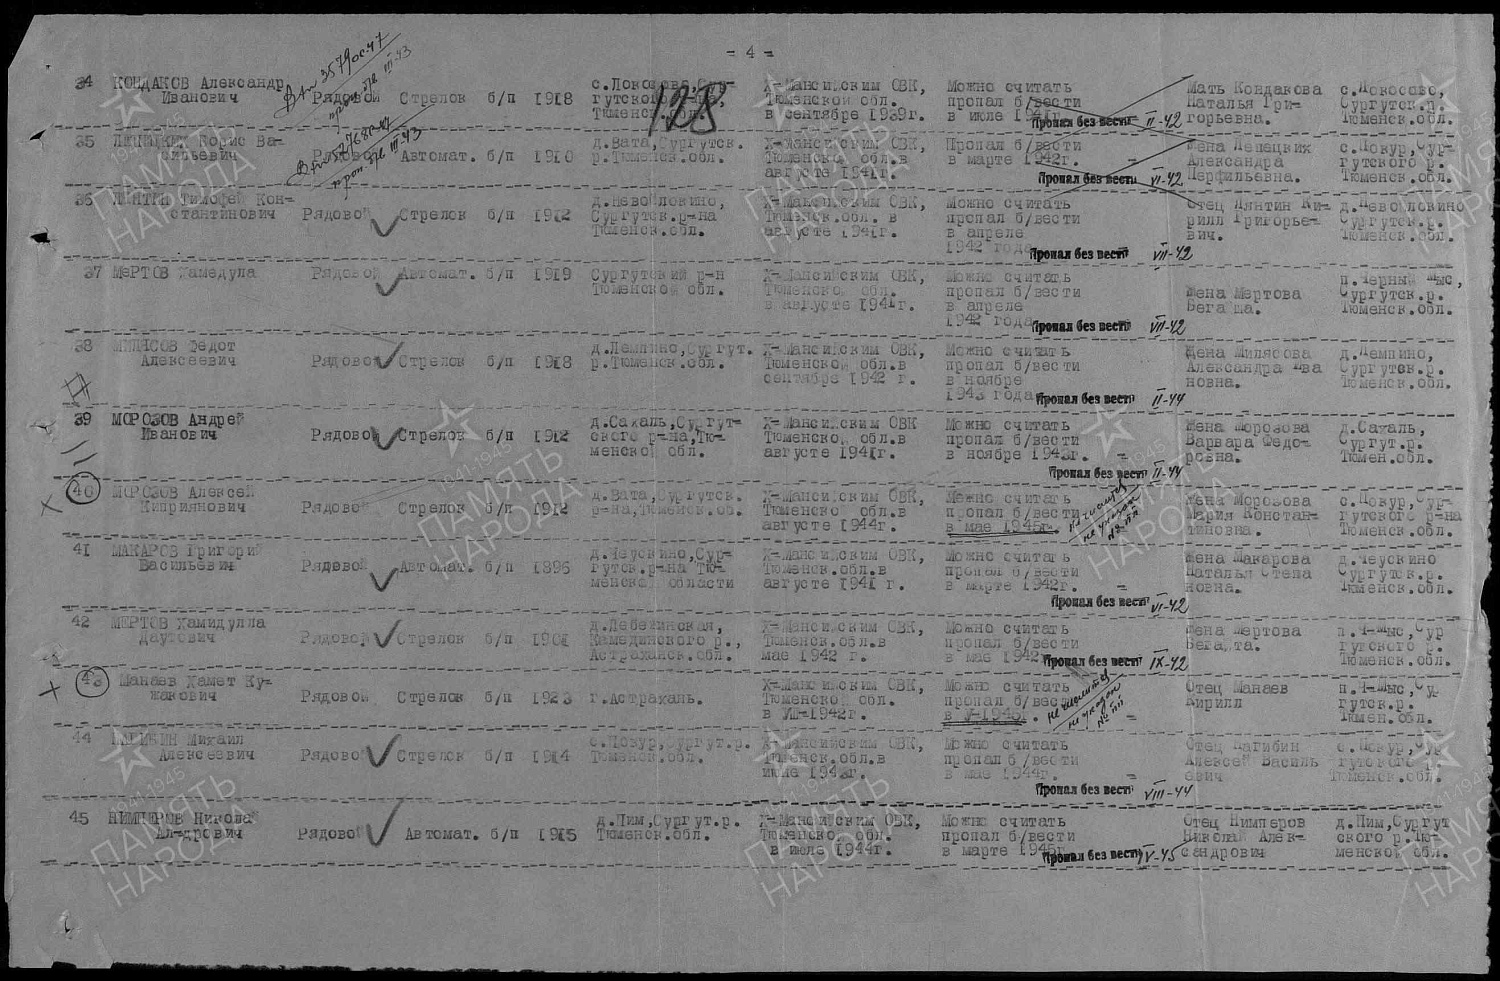 - 4 -
34 КОНДАКОВ Александр с.Локосово,Сур- Х-Мансийским ОВК, Можно считать Мать Кондакова с.Локосово,
Иванович Рядовой Стрелок б/п 1918 гутского р. Тюменской обл. пропал б/вести Наталья Гри- Сургутск.р.
Тюменск.обл. в сентябре 1939г. в июле 1941г. горьевна. Тюменск.обл.
128
Пропал без вести II-42
35 Борис Ва- д.Вата,Сургутск. Х-Мансийским ОВК, Пропал б/вести Жена Лепецких с.Покур,Сур-
сильевич Рядовой Автомат. б/п 1910 р.Тюменск.обл. Тюменской обл.в в марте 1942г. Александра гутского р.
августе 1941г. Перфильевна. Тюменск.обл.
Пропал без вести VI-42
36 ЛЯНТИН Тимофей Кон- Х-Мансийским ОВК, Можно считать Отец Лянтин Ки-
стантинович Рядовой Стрелок б/п 1912 Сургутск.р-на Тюменск.обл. в пропал б/вести рилл Григорье- Сургутск.р.
Тюменск.обл. августе 1941г. в апреле вич. Тюменск.обл.
1942 года
Пропал без вести VII-42
37 МЕРТОВ Хамедула Рядовой Автомат. б/п 1919 Сургутский р-н Х-Мансийским ОВК, Можно считать п.Черный Мыс,
Тюменской обл. Тюменской обл. пропал б/вести Жена Мертова Сургутск.р.
в августе 1941г. в апреле Тюменск.обл.
1942 года
Пропал без вести VII-42
38 МИЛЯСОВ Федот д.Лемпино,Сургут. Х-Мансийским ОВК, Можно считать Жена Милясова д.Лемпино,
Алексеевич Рядовой Стрелок б/п 1918 р.Тюменск.обл. Тюменской обл.в пропал б/вести Александра Ива Сургутск.р.
сентябре 1942 г. в ноябре новна. Тюменск.обл.
1943 года
Пропал без вести II-44
39 МОРОЗОВ Андрей д.Сахаль,Сургут- Х-Мансийским ОВК Можно считать Жена Морозова д.Сахаль,
Иванович Рядовой Стрелок б/п 1912 ского р-на,Тю- Тюменской обл.в пропал б/вести Варвара Федо- Сургут.р.
менской обл. августе 1941г. в ноябре 1943г. - ровна. Тюмен.обл.
Пропал без вести II-44
40 МОРОЗОВ Алексей д.Вата,Сургутск. Х-Мансийским ОВК, Можно считать Жена Морозова с.Покур,Сур-
Киприянович Рядовой Стрелок б/п 1912 р-на,Тюменск.об. Тюменской обл.в пропал б/вести Мария Констан- гутского р-на
августе 1944г. в мае 1945г. тиновна. Тюменск.обл.
41 МАКАРОВ Григорий д.Чеускино,Сур- Х-Мансийским ОВК, Можно считать Жена Макарова д.Чеускино
Васильевич Рядовой Автомат. б/п 1896 гутск.р-на Тю- Тюменск.обл.в пропал б/вести Наталья Степа Сургутск.р.
менской области августе 1941 г. в марте 1942г. - новна. Тюменск.обл.
Пропал без вести VI-42
42 МЕРТОВ Хамидулла д.Лебединская, Х-Мансийским ОВК, Можно считать Жена Мертова п.Ч-Мыс,Сур
Даутович Рядовой Стрелок б/п 1901 Камединского р., Тюменск.обл.в пропал б/вести гутского р.
Астраханск.обл. мае 1942 г. в мае 1942г. Тюменск.обл.
Пропал без вести IX-42
43 Манаев Хамет Ку- Х-Мансийским ОВК, Можно считать Отец Манаев п.Ч-Мыс,Сур
жакович Рядовой Стрелок б/п 1923 г.Астрахань. Тюменской обл. пропал б/вести Кирилл гутск.р.
в VIII-1942г. в V-1945г. - Тюмен.обл.
44 НАГИБИН Михаил с.Покур,Сургут.р. Х-Мансийским ОВК, Можно считать Отец Нагибин с.Покур,Сур
Алексеевич Рядовой Стрелок б/п 1914 Тюменск.обл. Тюменск.обл.в пропал б/вести Алексей Василь гутского р.
июле 1942г. в мае 1944г. - евич Тюменск.обл.
Пропал без вести VIII-44
45 НИМПЕРОВ Николай д.Пим,Сургут.р. Х-Мансийским ОВК, Можно считать Отец Нимперов д.Пим,Сургут
Ал-дрович Рядовой Автомат. б/п 1915 Тюменск.обл. Тюменской обл. пропал б/вести Николай Алек- ского р.Тю-
в июле 1944г. в марте 1945г. сандрович менской обл.
Пропал без вести IV-45
ПАМЯТЬ
НАРОДА
1941-1945